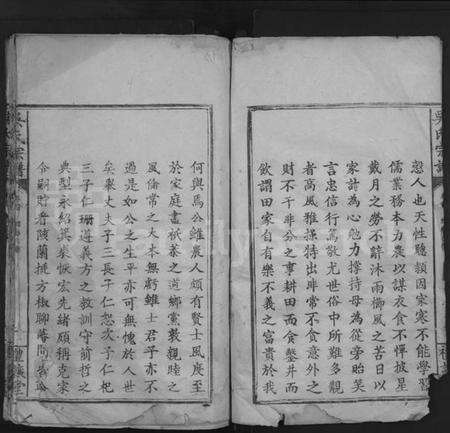 吳氏宗譜
戀人也天性聰頴因家寒不能學習
儒業務本力農以謀衣食不憚披星
戴月之勞不辭沐雨櫛風之苦日以
家計為心勉力撐持母為從旁貽笑
言忠信行篤敬光世俗中所難多覯
者高風雅操特出非常不食意外之
財不干非分之事耕田而食鑿井而
飲謂田家自有樂不義之富貴於我
何與焉公雖農人頗有賢士風度至
於家庭書祇恭之道鄉黨敦親睦之
風倫常之大本無虧雖士君子亦不
過是如公之生平亦可無愧於人世
矣舉丈夫子三長子仁恕次子仁杞
三子仁珊遵義方之教訓守前哲之
典型永紹箕裘恢宏先緒頗稱克家
令嗣貯看陔蘭挺方椒聊蕃
吳氏宗譜